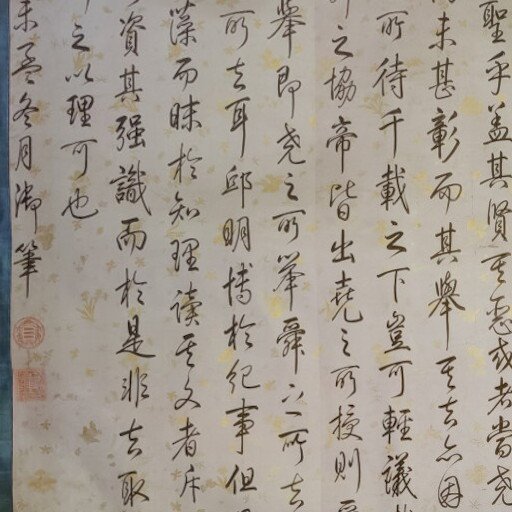 聖乎蓋其賢其惡或者當堯
未甚彰而其舉其去亦因
所待千載之下豈可輕議
之協帝皆出堯之所授則
舉即堯之所舉舜之所去
所去耳邱明博於紀事但
藻而昧於知理讀其文者斥
資其強識而於是非去取
之以理可也
未孟冬月御筆